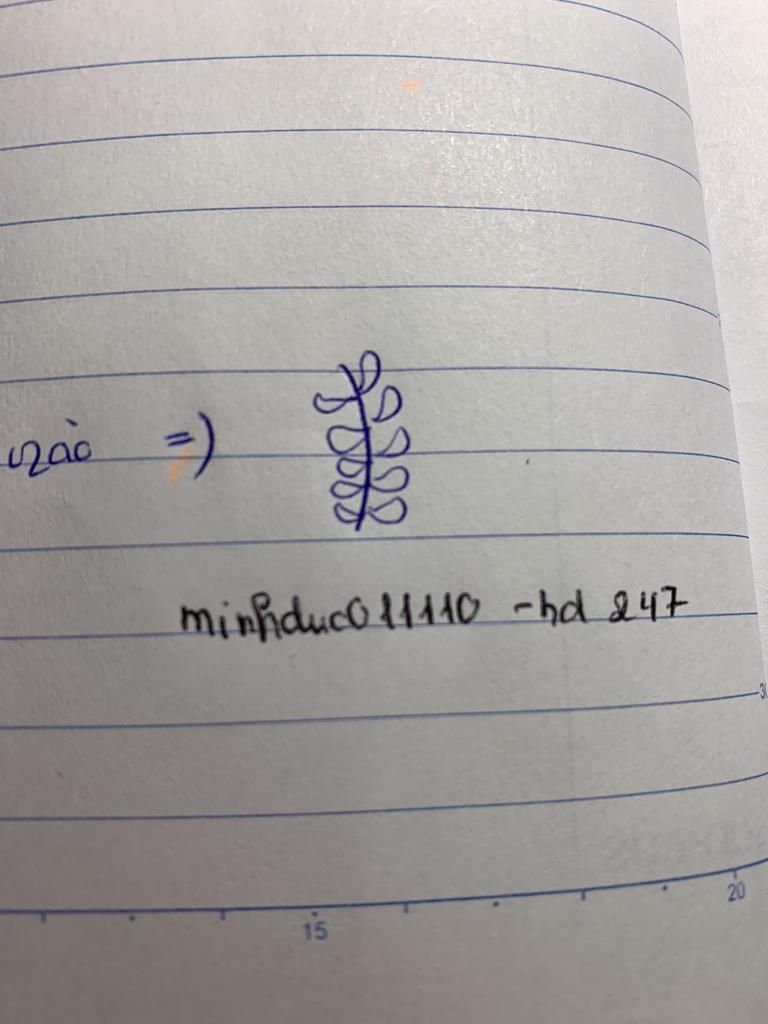 =)
minhduc011110 - hd 247
30
15
20